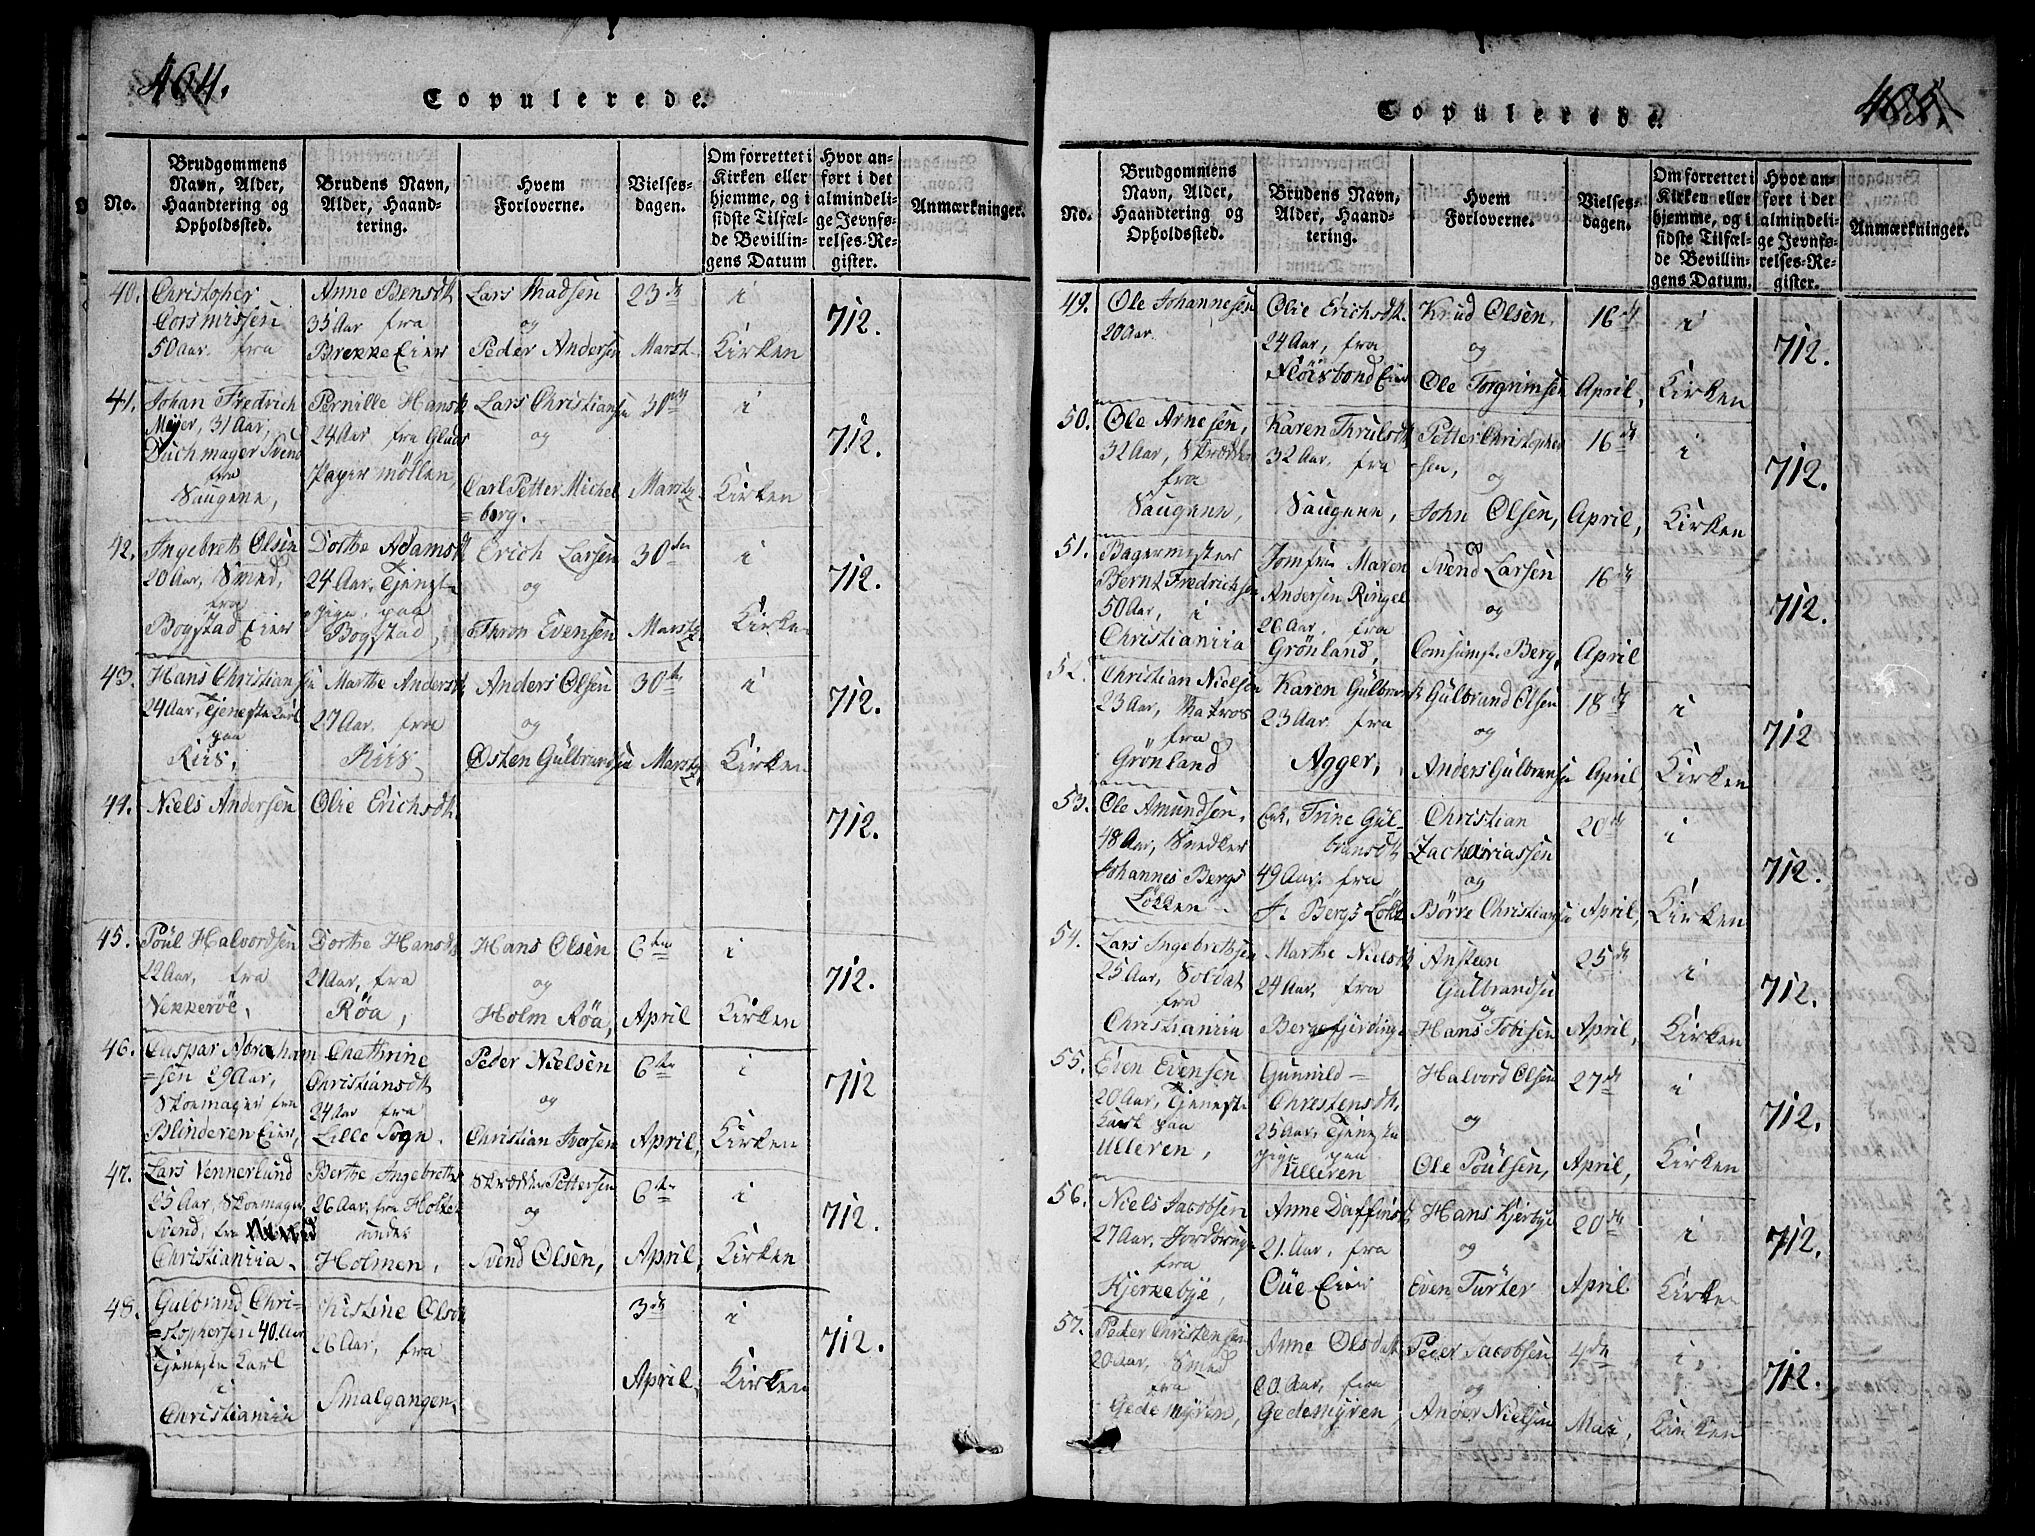 464.
Copulerede.
No.
Brudgommens Navn, Alder, Haandtering og Opholdssted.
Brudens Navn, Alder, Haandtering.
Hvem Forloverne.
Vielsesdagen.
Om forrettet i Kirken eller hjemme, og i sidste Tilfælde Bevillingens Datum
Hvor anført i det almindelige Jevnførelses-Register.
Anmærkninger.
40. Christopher Anne Bensdt Lars Madsen 23de i
35 Aar fra og 712.
50 Aar. fra Brekke Eier Peder Andersen Marst. Kirken
41. Johan Fredrich Pernille Hansdt Lars Christiansen 30 i
Meier, 31 Aar, 24 Aar fra og 712.
Svend Papir møllen,
fra Carl Petter Michel Kirken
Saugene, =berg.
42. Ingebreth Olsen Dorthe Adamsdt Erich Larsen 30 i
20 Aar, Smed, 24 Aar, og 712.
fra pige paa
Bogstad Eier Bogstad, Thron Evensen Kirke
43. Hans Christiansen Marthe Andersdt Anders Olsen 30te i
24 Aar, Tjeneste Karl 27 Aar. fra og 712.
paa
Riis, Riis, Østen Gulbrandsen Kirken
44. Niels Andersen Olie Erichsdt. 712.
45. Poul Halvordsen Dorthe Hansdt Hans Olsen 6te i
22 Aar, fra 21 Aar, fra og 712.
Vekkerøe, Røa, Holm Røa, April Kirken
46. Caspar Abraham Chathrine Peder Nielsen 6te i
=sen 29 Aar, Christiansdt 712
Skoemager fra 24 Aar fra og
Blinderen Eier, Lille Sogn. Christian Iversen April, Kirken
47. Lars Vennerlund Berthe Ingebreths Pettersen 6te i
25 Aar, Skoemager 26 Aar, fra og 712.
Svend, fra under
Christiania. Holmen, Svend Olsen, April, Kirken
48. Gulbrand Chri= Christine Olsdt 3de i
=stophersen 40 Aar 26 Aar, fra 712.
Tjeneste Karl April, Kirken
i Smalgangen,
Christiania
Copulerede.
No.
Brudgommens Navn, Alder, Haandtering og Opholdssted.
Brudens Navn, Alder, Haandtering.
Hvem Forloverne.
Vielsesdagen.
Om forrettet i Kirken eller hjemme, og i sidste Tilfælde Bevillingens Datum.
Hvor anført i det almindelige Jevnførelses-Register.
Anmærkninger.
49. Ole Johannesen Olie Erichsdt. Knud Olsen, 16de i
20 Aar. 24 Aar, fra og 712.
Ole Torgrimsen April, Kirken
50. Ole Arnesen, Karen Thrulsdt Petter Christopher 16de i
32 Aar, Skrædder 32 Aar. fra =sen, og 712.
fra
Saugene, Saugene, John Olsen, April, Kirken
51. Bagermester Jomfru Maren Svend Larsen 16de
Bernt Fredrichsen Andersen Ringel og 712.
50 Aar, i 26 Aar. fra
Christiania Grønland, Berg, April
52. Christian Nielsen Karen Gulbr Gulbrand Olsen 18de i
23 Aar, Matros 23 Aar. fra og 712
fra
Grønland Agger, Anders Gulbransen April, Kirken
53. Ole Amundsen, Enk. Trine Gul- Christian 20de i
48 Aar, Snedker bransdt Zachariassen 712.
Johannes Bergs 49 Aar. fra og
Løkken. J. Bergs Løkk Børre Christiansen April, Kirken
54. Lars Ingebrethsen Marthe Nielsdt Austen 25de i
25 Aar, Soldat 24 Aar, fra Gulbrandsen 712.
fra og
Christiania Bergsfjerding Hans Tobisen, April, Kirken
55. Even Evensen Gunnild= Halvord Olsen 27de i
20 Aar, Tjeneste Christensdt. og 712.
Karl paa 25 Aar, Tjeneste
Ulleren, pige paa
Ulleren Ole Poulsen, April, Kirken
56. Niels Jacobsen Anne Hans Kjerbye 20de i
27 Aar, Jordbrug 21. Aar, fra og 712.
fra
Kjerkebye, Oue Eier Even Turter April Kirken
57. Peder Christensen Anne Olsdatt Peder Jacobsen 4de i
20 Aar, Smed 20. Aar, fra og 712.
fra
Gedemyren, Gedemyren, Nielsen Mai, Kirken